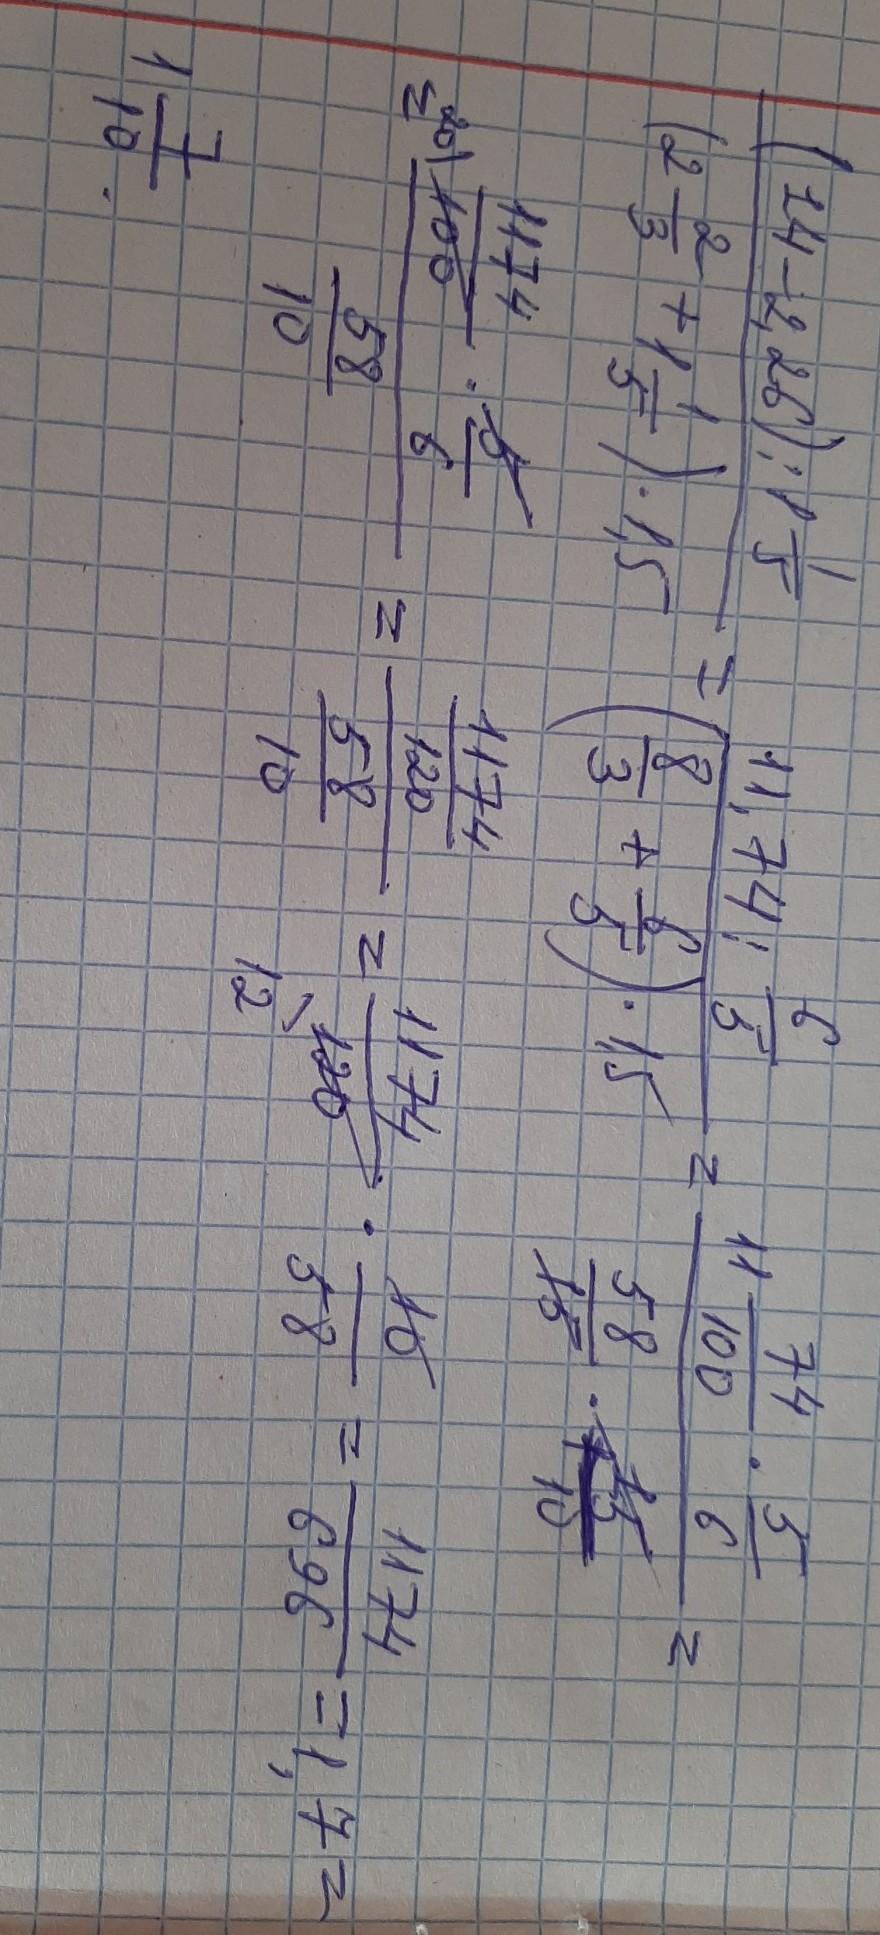 (14-2,26):1 1/5 / (2 2/3 + 1 1/5) · 1,5 = 11,74 : 6/5 / (8/3 + 6/5) · 1,5 = 11 74/100 · 5/6 / 58/15 · 15/10 =
= 1174/100 20) · 5/6 / 58/10 = 1174/120 / 58/10 = 1174/120 12 · 10/58 = 1174/696 = 1,7 =
1 7/10.